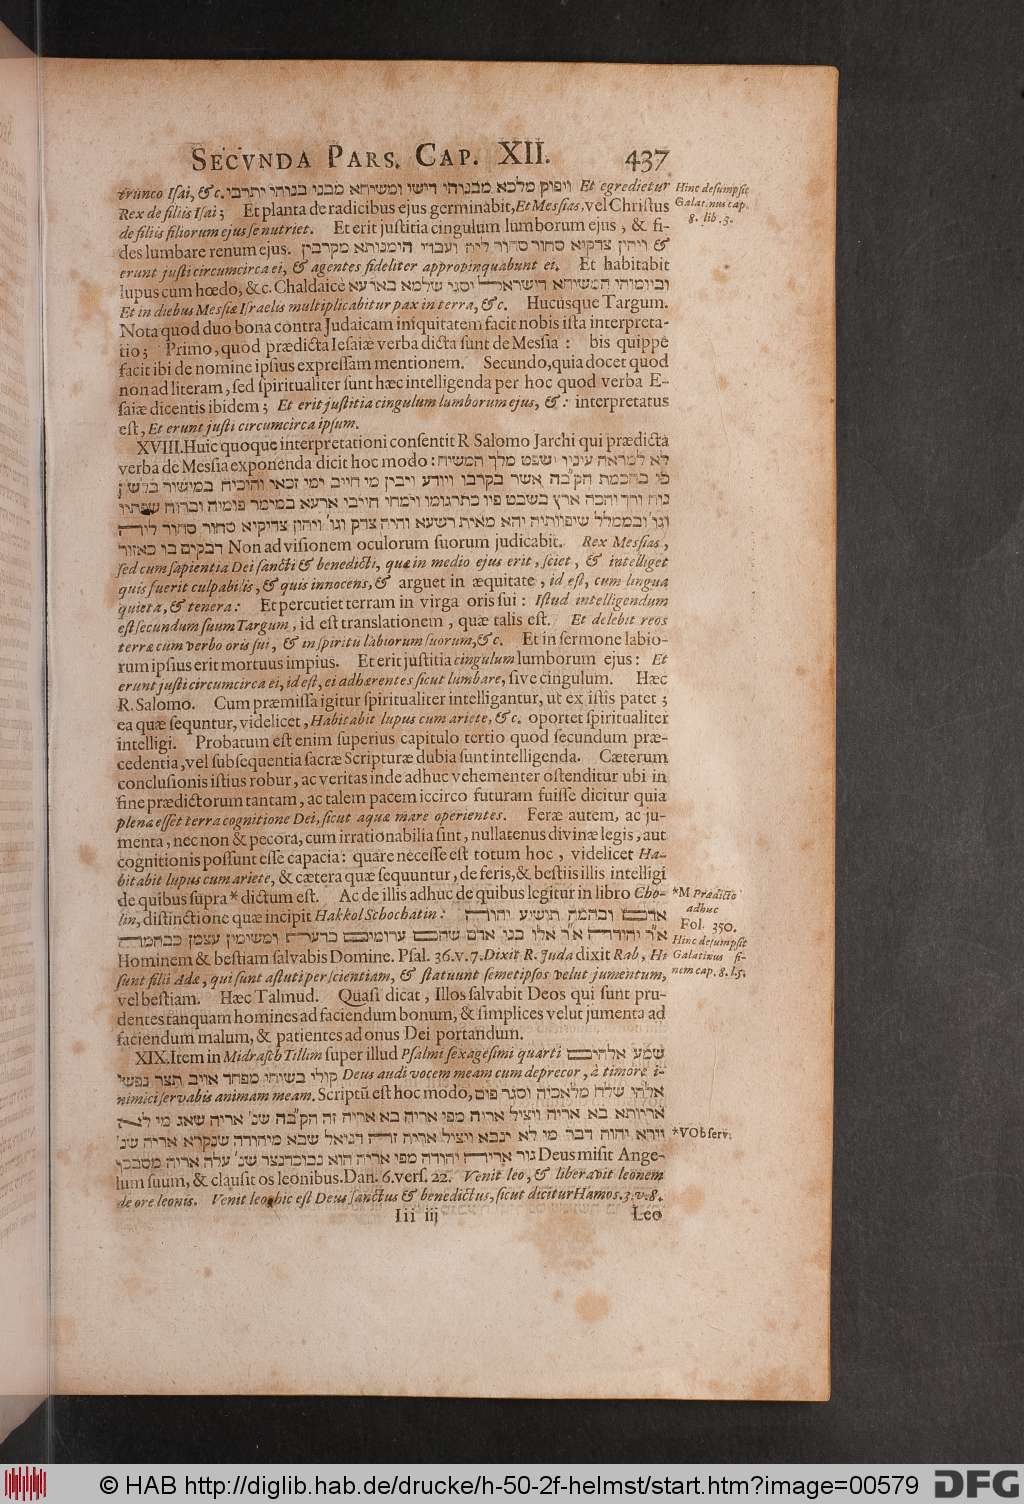 SECVNDA PARS. CAP. XII. 437
trunco Isai, &c. ויפוק מלכא מבנוהי דישי ומשיחא מבני בנוהי יתרבי Et egredietur
Rex de filiis Isai; Et planta de radicibus ejus germinabit, Et Messias, vel Christus
de filiis filiorum ejus se nutriet. Et erit justitia cingulum lumborum ejus, & fi-
des lumbare renum ejus. ויהון צדקיא סחור סחור ליה ועבדי הימנותא מקרבין &
erunt justi circumcirca ei, & agentes fideliter appropinquabunt et. Et habitabit
lupus cum hœdo, &c. Chaldaicè וביומוהי דמשיחא דישראל יסגי שלמא בארעא
Et in diebus Messiæ Israelis multiplicabitur pax in terra, &c. Hucúsque Targum.
Nota quod duo bona contra Judaicam iniquitatem facit nobis ista interpreta-
tio; Primo, quod prædicta Iesaiæ verba dicta sunt de Messia: bis quippe
facit ibi de nomine ipsius expressam mentionem. Secundo, quia docet quod
non ad literam, sed spiritualiter sunt hæc intelligenda per hoc quod verba E-
saiæ dicentis ibidem; Et erit justitia cingulum lumborum ejus, &: interpretatus
est, Et erunt justi circumcirca ipsum.
XVIII. Huic quoque interpretationi consentit R Salomo Jarchi qui prædicta
verba de Messia exponenda dicit hoc modo: לא למראה עיניו ישפט מלך המשיח
כי בחכמת הק״בה אשר בקרבו ויודע ויבין מי חייב ומי זכאי והוכיח במישור בלשון
נוח ורך והכה ארץ בשבט פיו כתרגומו וימחי חייבי ארעא במימר פומיה וברוח שפתיו
וגו׳ ובממלל שיפוותיה יהא מאית רשעא והיה צדק וגו׳ ויהון צדיקיא סחור סחור ליה
דבקים בו כאזור Non ad visionem oculorum suorum judicabit. Rex Messias,
sed cum sapientia Dei sancti & benedicti, quæ in medio ejus erit, sciet, & intelliget
quis fuerit culpabilis, & quis innocens, & arguet in æquitate, id est, cum lingua
quieta, & tenera: Et percutiet terram in virga oris sui: Istud intelligendum
est secundum suum Targum, id est translationem, quæ talis est. Et delebit reos
terræ cum verbo oris sui, & in spiritu labiorum suorum, &c. Et in sermone labio-
rum ipsius erit mortuus impius. Et erit justitia cingulum lumborum ejus: Et
erunt justi circumcirca ei, id est, ei adhærentes sicut lumbare, sive cingulum. Hæc
R. Salomo. Cum præmissa igitur spiritualiter intelligantur, ut ex istis patet;
ea quæ sequntur, videlicet, Habitabit lupus cum ariete, &c. oportet spiritualiter
intelligi. Probatum est enim superius capitulo tertio quod secundum præ-
cedentia, vel subsequentia sacræ Scripturæ dubia sunt intelligenda. Cæterum
conclusionis istius robur, ac veritas inde adhuc vehementer ostenditur ubi in
fine prædictorum tantam, ac talem pacem iccirco futuram fuisse dicitur quia
plena esset terra cognitione Dei, sicut aquæ mare operientes. Feræ autem, ac ju-
menta, nec non & pecora, cum irrationabilia sint, nullatenus divinæ legis, aut
cognitionis possunt esse capacia: quare necesse est totum hoc, videlicet Ha-
bitabit lupus cum ariete, & cætera quæ sequuntur, de feris, & bestiis illis intelligi
de quibus supra * dictum est. Ac de illis adhuc de quibus legitur in libro Cho-
lin, distinctione quæ incipit Hakkol Schochatin: אדם ובהמה תושיע יהוה
א״ר יהודה א״ר אלו בני אדם שהם ערומים בדעת ומשימין עצמן כבהמה
Hominem & bestiam salvabis Domine. Psal. 36. v. 7. Dixit R. Juda dixit Rab, Hi
sunt filii Adæ, qui sunt astuti per scientiam, & statuunt semetipsos velut jumentum,
vel bestiam. Hæc Talmud. Quasi dicat, Illos salvabit Deos qui sunt pru-
dentes tanquam homines ad faciendum bonum, & simplices velut jumenta ad
faciendum malum, & patientes ad onus Dei portandum.
XIX. Item in Midrasch Tillim super illud Psalmi sexagesimi quarti שמע אלהים
קולי בשיחי מפחד אויב תצר נפשי Deus audi vocem meam cum deprecor, à timore i-
nimici servabis animam meam. Scriptũ est hoc modo, אלהי שלח מלאכיה וסגר פום
אריותא בא אריה ויציל אריה מפי אריה בא אריה זה הק״בה שנ׳ אריה שאג מי לא
יירא יהוה דבר מי לא ינבא ויציל אריה זה דניאל שבא מיהודה שנקרא אריה שנ׳
גור אריה יהודה מפי אריה הוא נבוכדנצר שנ׳ עלה אריה מסבכו Deus misit Ange-
lum suum, & clausit os leonibus. Dan. 6. vers. 22. Venit leo, & liberavit leonem
de ore leonis. Venit leo hic est Deus sanctus & benedictus, sicut dicitur Hamos. 3. v. 8.
Iii iij Leo
Hinc desumpsit
Galatinus cap.
8. lib. 3.
*M Prædicto
adhuc
Fol. 350.
Hinc desumpsit
Galatinus fi-
nem cap. 8. l. 5.
*V Observ:
© HAB http://diglib.hab.de/drucke/h-50-2f-helmst/start.htm?image=00579 DFG